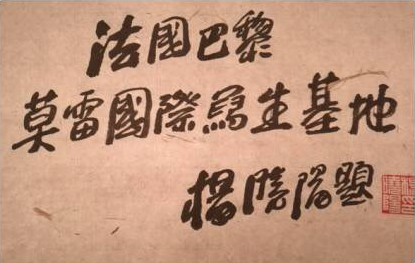 法國巴黎
莫雷國際寫生基地
楊隂陽題